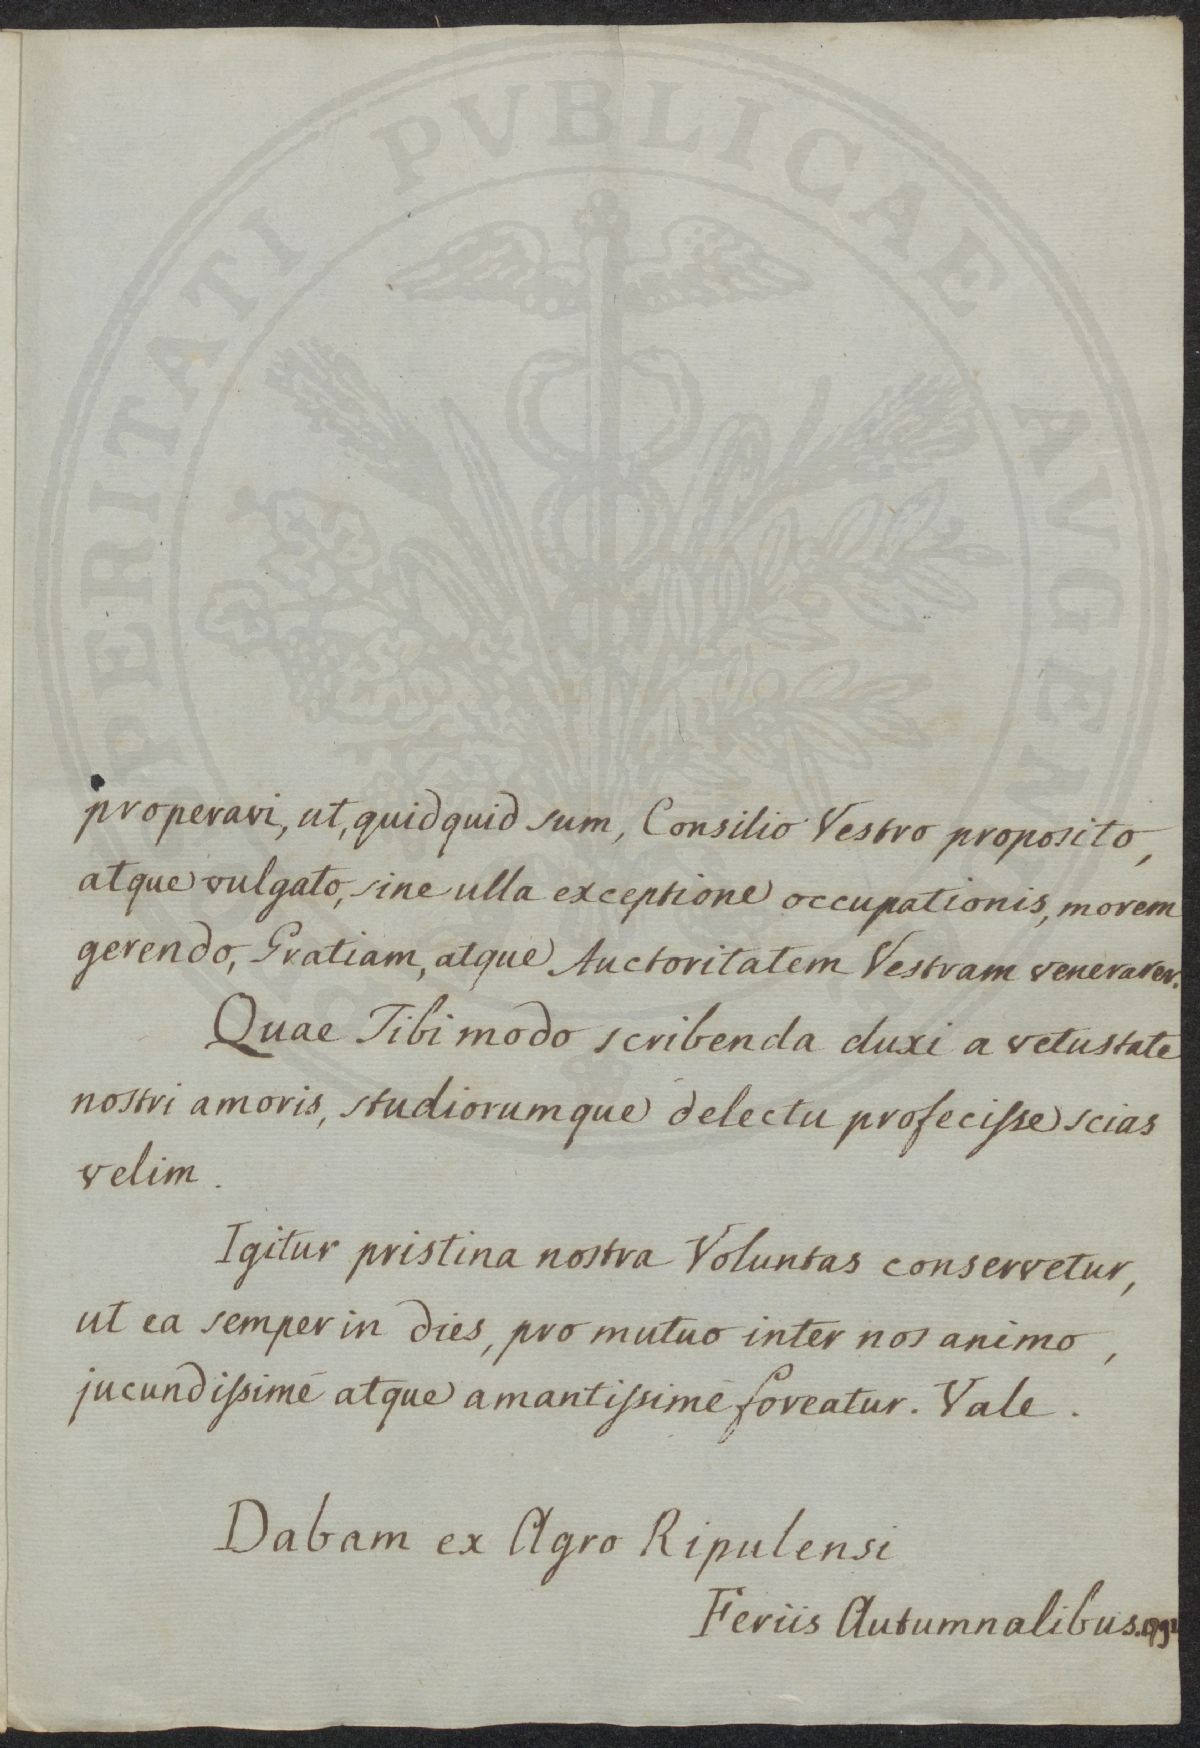 properavi, ut, quidquid sum, Consilio Vestro proposito,
atque vulgato, sine ulla exceptione occupationis, morem
gerendo, Gratiam, atque Auctoritatem Vestram venerarer.
Quae Tibi modo scribenda duxi a vetustate
nostri amoris, studiorumque delectu profecisse scias
velim.
Igitur pristina nostra Voluntas conservetur,
ut ea semper in dies, pro mutuo inter nos animo,
jucundissimè atque amantissimè foveatur. Vale.
Dabam ex Agro Ripulensi
Feriis Autumnalibus.